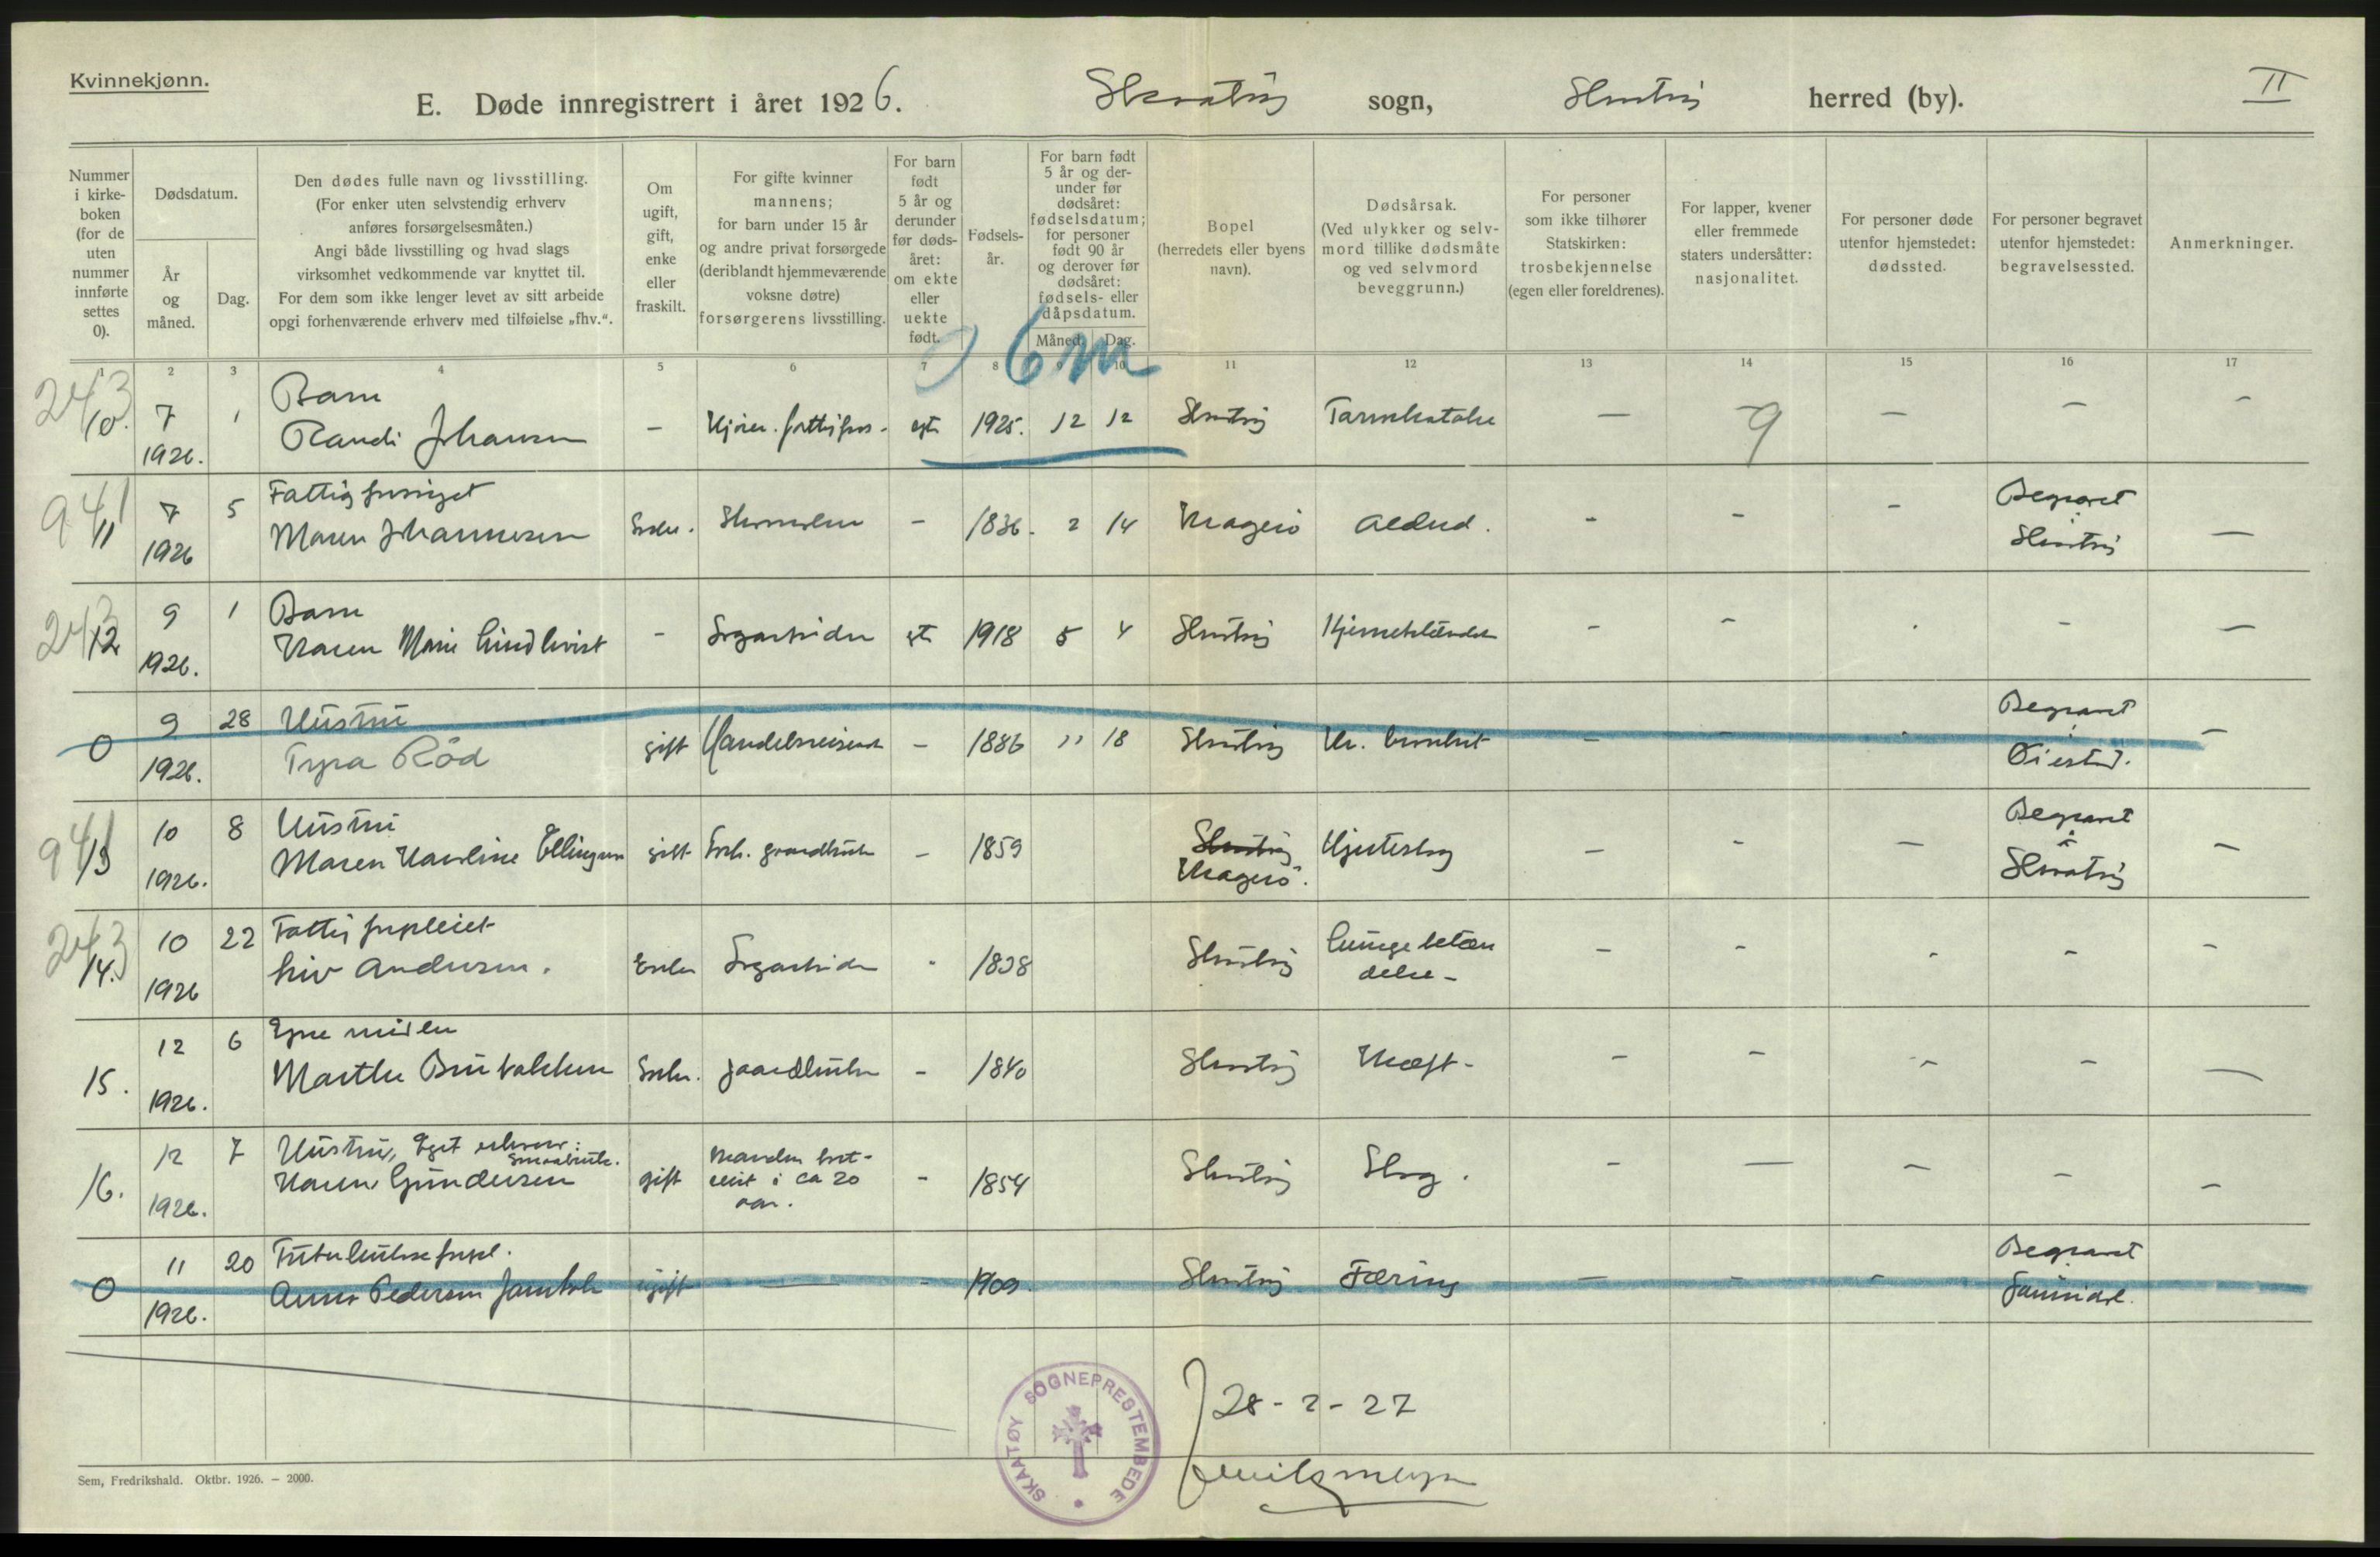 Kvinnekjønn.
E. Døde innregistrert i året 1926. Skaatøy sogn, Skaatøy herred (by). II
Nummer i kirkeboken (for de uten nummer innførte settes 0).
Dødsdatum.
År og måned.
Dag.
Den dødes fulle navn og livsstilling.
(For enker uten selvstendig erhverv
anføres forsørgelsesmåten.)
Angi både livsstilling og hvad slags
virksomhet vedkommende var knyttet til.
For dem som ikke lenger levet av sitt arbeide
opgi forhenværende erhverv med tilføielse „fhv.“.
Om ugift, gift, enke eller fraskilt.
For gifte kvinner
mannens;
for barn under 15 år
og andre privat forsørgede
(deriblandt hjemmeværende
voksne døtre)
forsørgerens livsstilling.
For barn født 5 år og derunder før dødsåret: om ekte eller uekte født.
Fødselsår.
For barn født
5 år og derunder før
dødsåret:
fødselsdatum;
for personer
født 90 år
og derover før
dødsåret:
fødsels- eller
dåpsdatum.
Måned. Dag.
Bopel
(herredets eller byens
navn).
Dødsårsak.
(Ved ulykker og selvmord tillike dødsmåte
og ved selvmord
beveggrunn.)
For personer
som ikke tilhører
Statskirken:
trosbekjennelse
(egen eller foreldrenes).
For lapper, kvener
eller fremmede
staters undersåtter:
nasjonalitet.
For personer døde
utenfor hjemstedet:
dødssted.
For personer begravet
utenfor hjemstedet:
begravelsessted.
Anmerkninger.
1 2 3 4 5 6 7 8 9 10 11 12 13 14 15 16 17
6 m
243
10. 7 1926. 1 Barn
Randi Johansen – – 1925. 12 12 Skaatøy – – – – –
9
941
11 7 1926 5 Fattigforsørget
Maren Johannesen Enke. – 1836. 2 14 Kragerö – – – Begravet
Skaatøy –
243
12 9 1926. 1 Barn
Karen Marie Lindkvist – 1918 5 4 Skaatøy – – – –
0 9 1926. 28 Hustru
Tyra Röd gift Handelsreisende – 1886 11 18 Skaatøy – – – Begravet
i
Öiestad. –
941
13 10 1926. 8 Hustru
Maren Karoline Ellingsen gift – 1859 Skaatøy
Kragerö. Hjerteslag – – – Begravet
i
Skaatøy –
243
14. 10 1926 22 Fattigforpleiet
Liv Andersen. Enke – 1838 Skaatøy Lungebetæn
delse – – – – – –
15. 12 1926. 6 Egne midler
Marthe Enke. gaardbruker – 1840 Skaatøy Kræft – – – – – –
16. 12 1926. 7 Hustru, Eget erhverv:
Smaabruk.
Karen Gundersen gift Manden bort-
reist i ca 20
aar. – 1854 Skaatøy Slag. – – – – –
0 11 1926. 20
Anna Pedersen ugift – – 1909. Skaatøy Tæring – – – Begravet
SKAATØY SOGNEPRESTEMBEDE
28-2-27
Sem, Fredrikshald. Oktbr. 1926. – 2000.